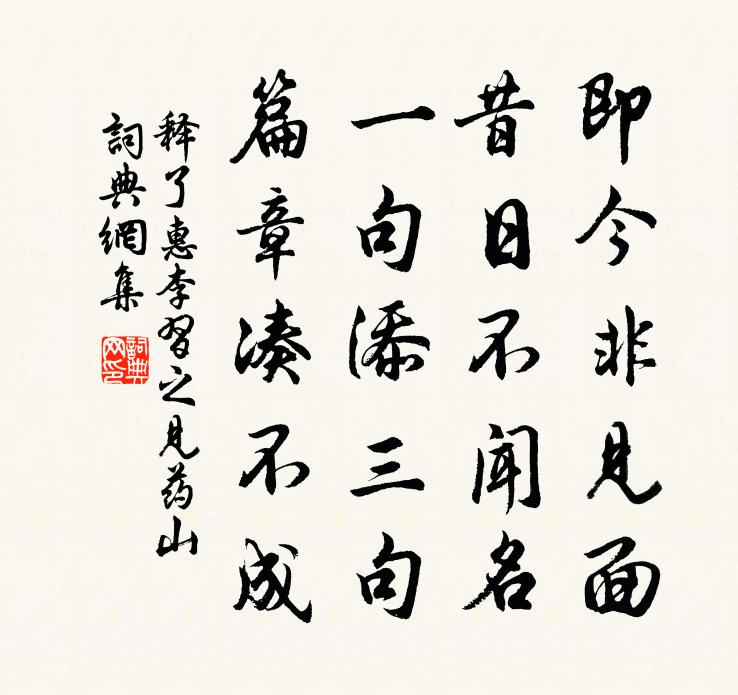 即今非见面
昔日不闻名
一句添三句
篇章凑不成
释了惠李習之见药山
詞典網集
詞典网印